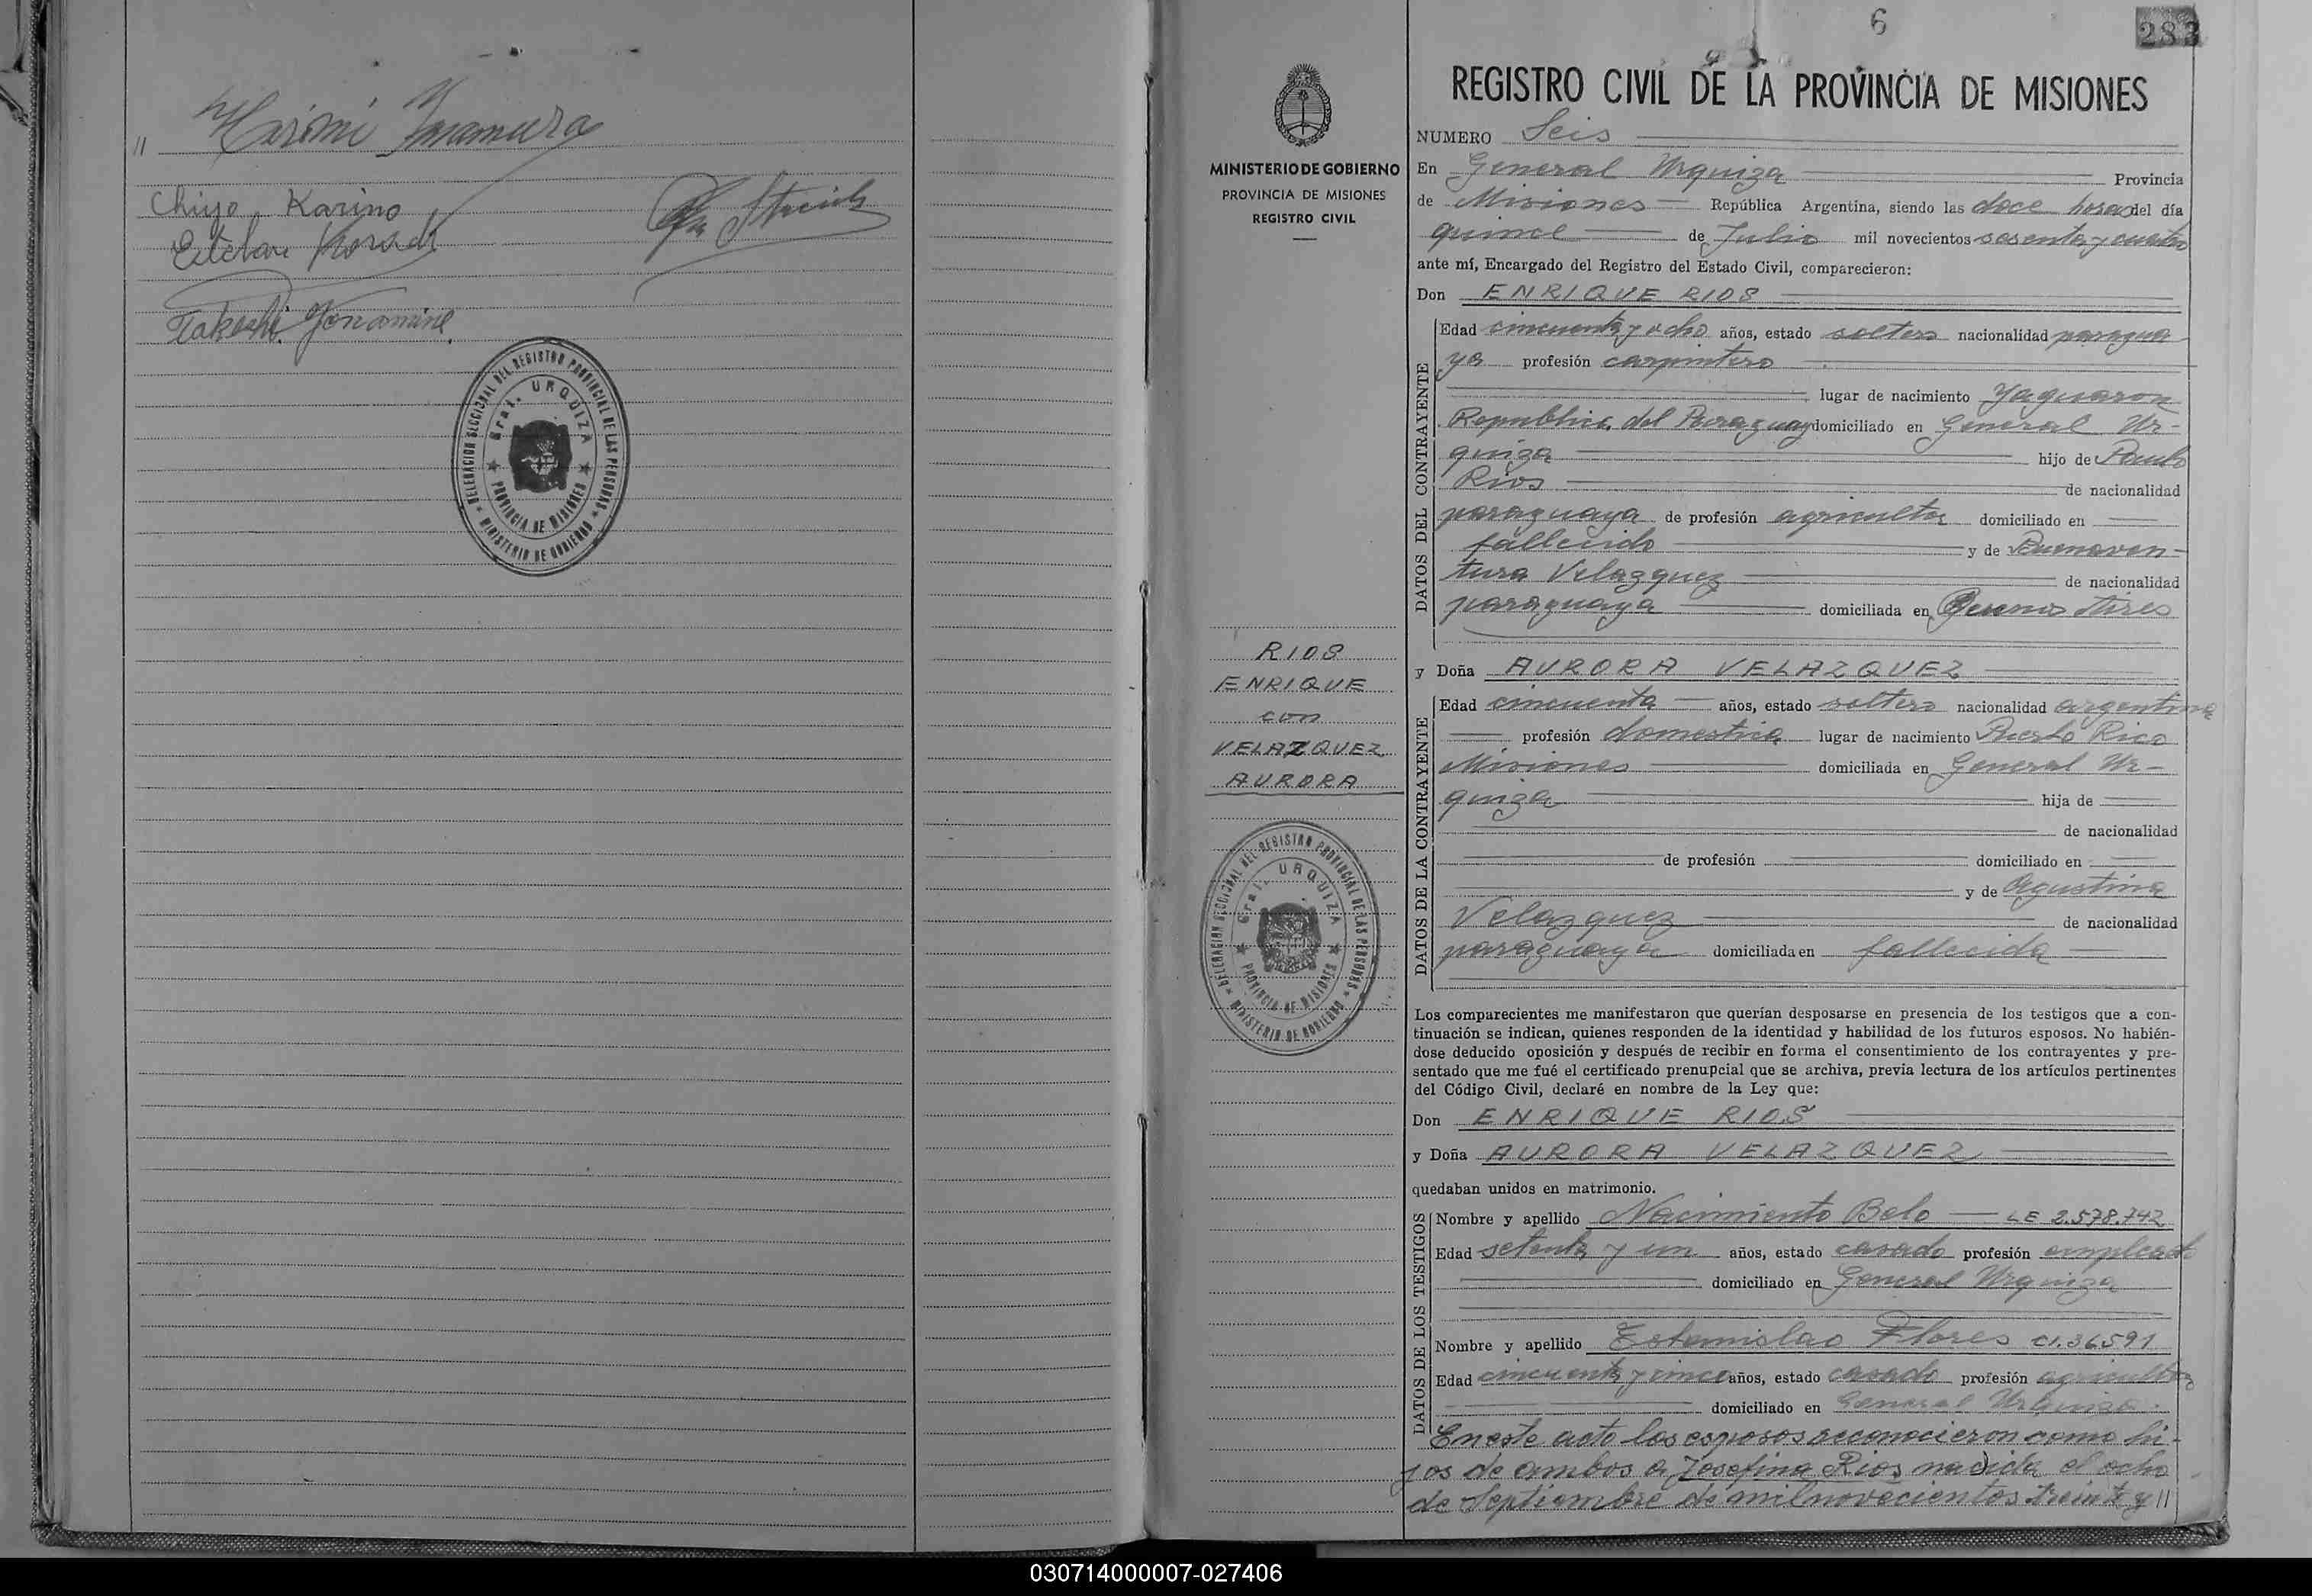 " Hiromi Imamura
Chiyo Karino
Esteban
Takeshi Yonamine
DELEGACION SECCIONAL DEL REGISTRO PROVINCIAL DE LAS PERSONAS
Gral. URQUIZA
PROVINCIA DE MISIONES
MINISTERIO DE GOBIERNO
MINISTERIO DE GOBIERNO
PROVINCIA DE MISIONES
REGISTRO CIVIL
RIOS
ENRIQUE
con
VELAZQUEZ
AURORA
DELEGACION SECCIONAL DEL REGISTRO PROVINCIAL DE LAS PERSONAS
Gral. URQUIZA
PROVINCIA DE MISIONES
MINISTERIO DE GOBIERNO
6
283
REGISTRO CIVIL DE LA PROVINCIA DE MISIONES
NUMERO Seis
En General Urquiza Provincia
de Misiones República Argentina, siendo las doce horas del día
quince de Julio mil novecientos sesenta y cuatro
ante mí, Encargado del Registro del Estado Civil, comparecieron:
Don ENRIQUE RIOS
DATOS DEL CONTRAYENTE
Edad cincuenta y ocho años, estado soltero nacionalidad paragua
ya profesión carpintero
lugar de nacimiento Yaguaron
Republica del Paraguay domiciliado en General Ur-
quiza hijo de Paulo
Rios de nacionalidad
paraguaya de profesión agricultor domiciliado en
fallecido y de Buenaven-
tura Velazquez de nacionalidad
paraguaya domiciliada en Buenos Aires
y Doña AURORA VELAZQUEZ
DATOS DE LA CONTRAYENTE
Edad cincuenta años, estado soltera nacionalidad argentina
profesión domestica lugar de nacimiento Puerto Rico
Misiones domiciliada en General Ur-
quiza hija de
de nacionalidad
de profesión domiciliado en
y de Agustina
Velazquez de nacionalidad
paraguaya domiciliada en fallecida
Los comparecientes me manifestaron que querían desposarse en presencia de los testigos que a con-
tinuación se indican, quienes responden de la identidad y habilidad de los futuros esposos. No habién-
dose deducido oposición y después de recibir en forma el consentimiento de los contrayentes y pre-
sentado que me fué el certificado prenupcial que se archiva, previa lectura de los artículos pertinentes
del Código Civil, declaré en nombre de la Ley que:
Don ENRIQUE RIOS
y Doña AURORA VELAZQUEZ
quedaban unidos en matrimonio.
DATOS DE LOS TESTIGOS
Nombre y apellido Nacimiento Belo LE 2.578.742
Edad setenta y un años, estado casado profesión empleado
domiciliado en General Urquiza
Nombre y apellido Estanislao Flores CI. 36591
Edad cincuenta y cinco años, estado casado profesión agricultor
domiciliado en General Urquiza
En este acto los esposos reconocieron como hi-
jos de ambos a Josefina Rios nacida el ocho
de Septiembre de mil novecientos treinta y //
030714000007-027406